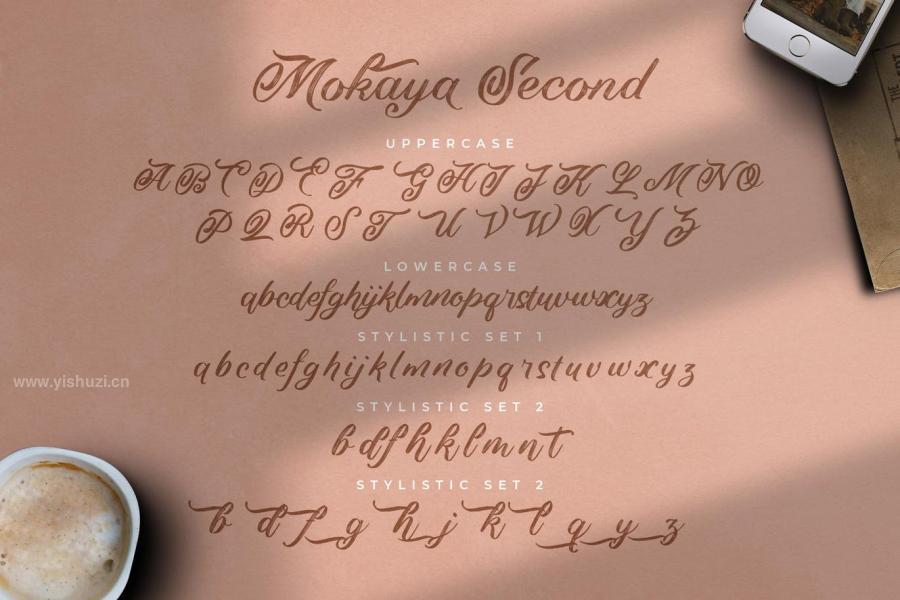 Mokaya Second
UPPERCASE
A B C D E F G H I J K L M N O
P Q R S T U V W X Y Z
LOWERCASE
abcdefghijklmnopqrstuvwxyz
STYLISTIC SET 1
a b c d e f g h i j k l m n o p q r s t u v w x y z
STYLISTIC SET 2
b d f h k l m n t
www.yishuzi.cn
STYLISTIC SET 2
b d f g h j k l q y z